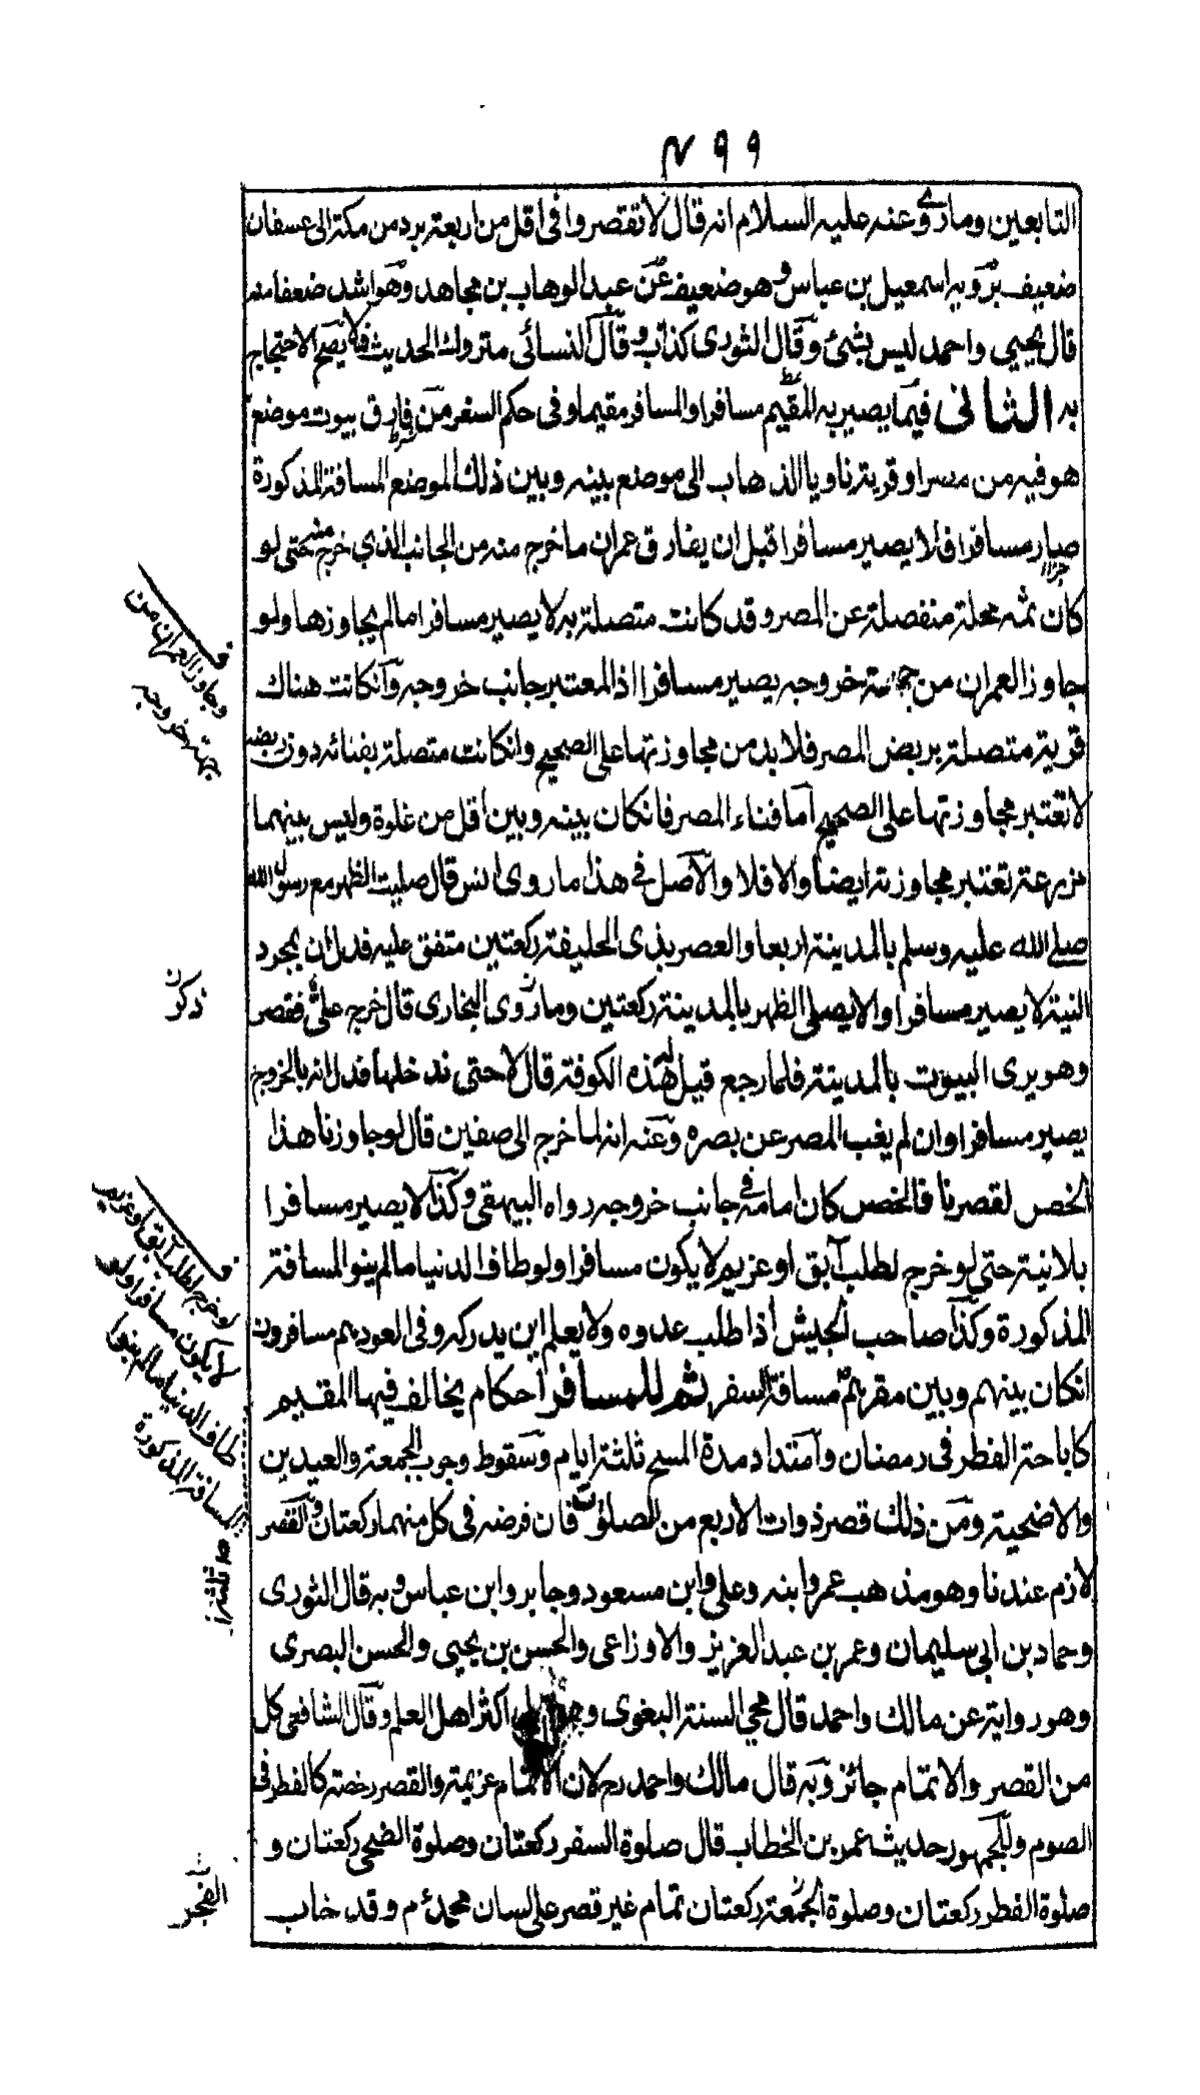 ٤٩٩
التابعين وما روي عنه عليه السلام انه قال لا تقصروا في اقل من اربعة برد من مكة الى عسفان
ضعيف يرويه اسمعيل بن عياش وهو ضعيف عن عبد الوهاب بن مجاهد وهو اشد ضعفا منه
قال يحيى واحمد ليس بشئ وقال الثورى كذاب وقال النسائى متروك الحديث فلا يصح الاحتجاج
به الثانى فيما يصير به المقيم مسافرا والمسافر مقيما وفى حكم السفر من فارق بيوت موضع
هو فيه من مصر او قرية ناويا الذهاب الى موضع بينه وبين ذلك الموضع المسافة المذكورة
صار مسافرا فلا يصير مسافرا قبل ان يفارق عمران ما خرج منه من الجانب الذي خرج حتى لو
كان ثمه محلة منفصلة عن المصر وقد كانت متصلة به لا يصير مسافرا ما لم يجاوزها ولو
جاوز العمران من جهة خروجه يصير مسافرا اذ المعتبر جانب خروجه وانكانت هناك
قرية متصلة بربض المصر فلا بد من مجاوزتها على الصحيح وانكانت متصلة بفنائه دون ربضه
لا تعتبر مجاوزتها على الصحيح اما فناء المصر فانكان بينه وبين اقل من غلوة وليس بينهما
مزرعة تعتبر مجاوزته ايضا والا فلا والاصل في هذا ما روى انس قال صليت الظهر مع رسول الله
صلى الله عليه وسلم بالمدينة اربعا والعصر بذى الحليفة ركعتين متفق عليه فدل ان بمجرد
النية لا يصير مسافرا والا يصلى الظهر بالمدينة ركعتين وما روى البخارى قال خرج على فقصر
وهو يرى البيوت بالمدينة فلما رجع قيل له هذه الكوفة قال لا حتى ندخلها فدل انه بالخروج
يصير مسافرا وان لم يغب المصر عن بصره وعنه انه لما خرج الى صفين قال لو جاوزنا هذا
الخص لقصرنا فالخص كان امامه في جانب خروجه رواه البيهقى وكذا لا يصير مسافرا
بلا نية حتى لو خرج لطلب آبق او غريم لا يكون مسافرا ولو طاف الدنيا ما لم ينو المسافة
المذكورة وكذا صاحب الجيش اذا طلب عدوه ولا يعلم اين يدركه وفى العود هم مسافرون
انكان بينهم وبين مقرهم مسافة السفر ثم للمسافر احكام يخالف فيها المقيم
كاباحة الفطر فى رمضان وامتداد مدة المسح ثلثة ايام وسقوط وجوب الجمعة والعيدين
والاضحية ومن ذلك قصر ذوات الاربع من الصلوات فان فرضه فى كل منهما ركعتان والقصر
لازم عندنا وهو مذهب عمر وابنه وعلى وابن مسعود وجابر وابن عباس وبه قال الثورى
وحماد بن ابى سليمان وعمر بن عبد العزيز والاوزاعى والحسن بن يحيى والحسن البصرى
وهو رواية عن مالك واحمد قال محي السنة البغوى وهو اكثر اهل العلم وقال الشافعى كل
من القصر والاتمام جائز وبه قال مالك واحمد رح لان الاتمام عزيمة والقصر رخصة كالفطر فى
الصوم وللجمهور حديث عمر بن الخطاب قال صلوة السفر ركعتان وصلوة الضحى ركعتان و
صلوة الفطر ركعتان وصلوة الجمعة ركعتان تمام غير قصر على لسان محمد م وقد خاب
وجاوز العمران من
جهة خروجه
لو خرج لطلب آبق او غريم
لا يكون مسافرا ولو
طاف الدنيا ما لم ينو
المسافة المذكورة
الفجر